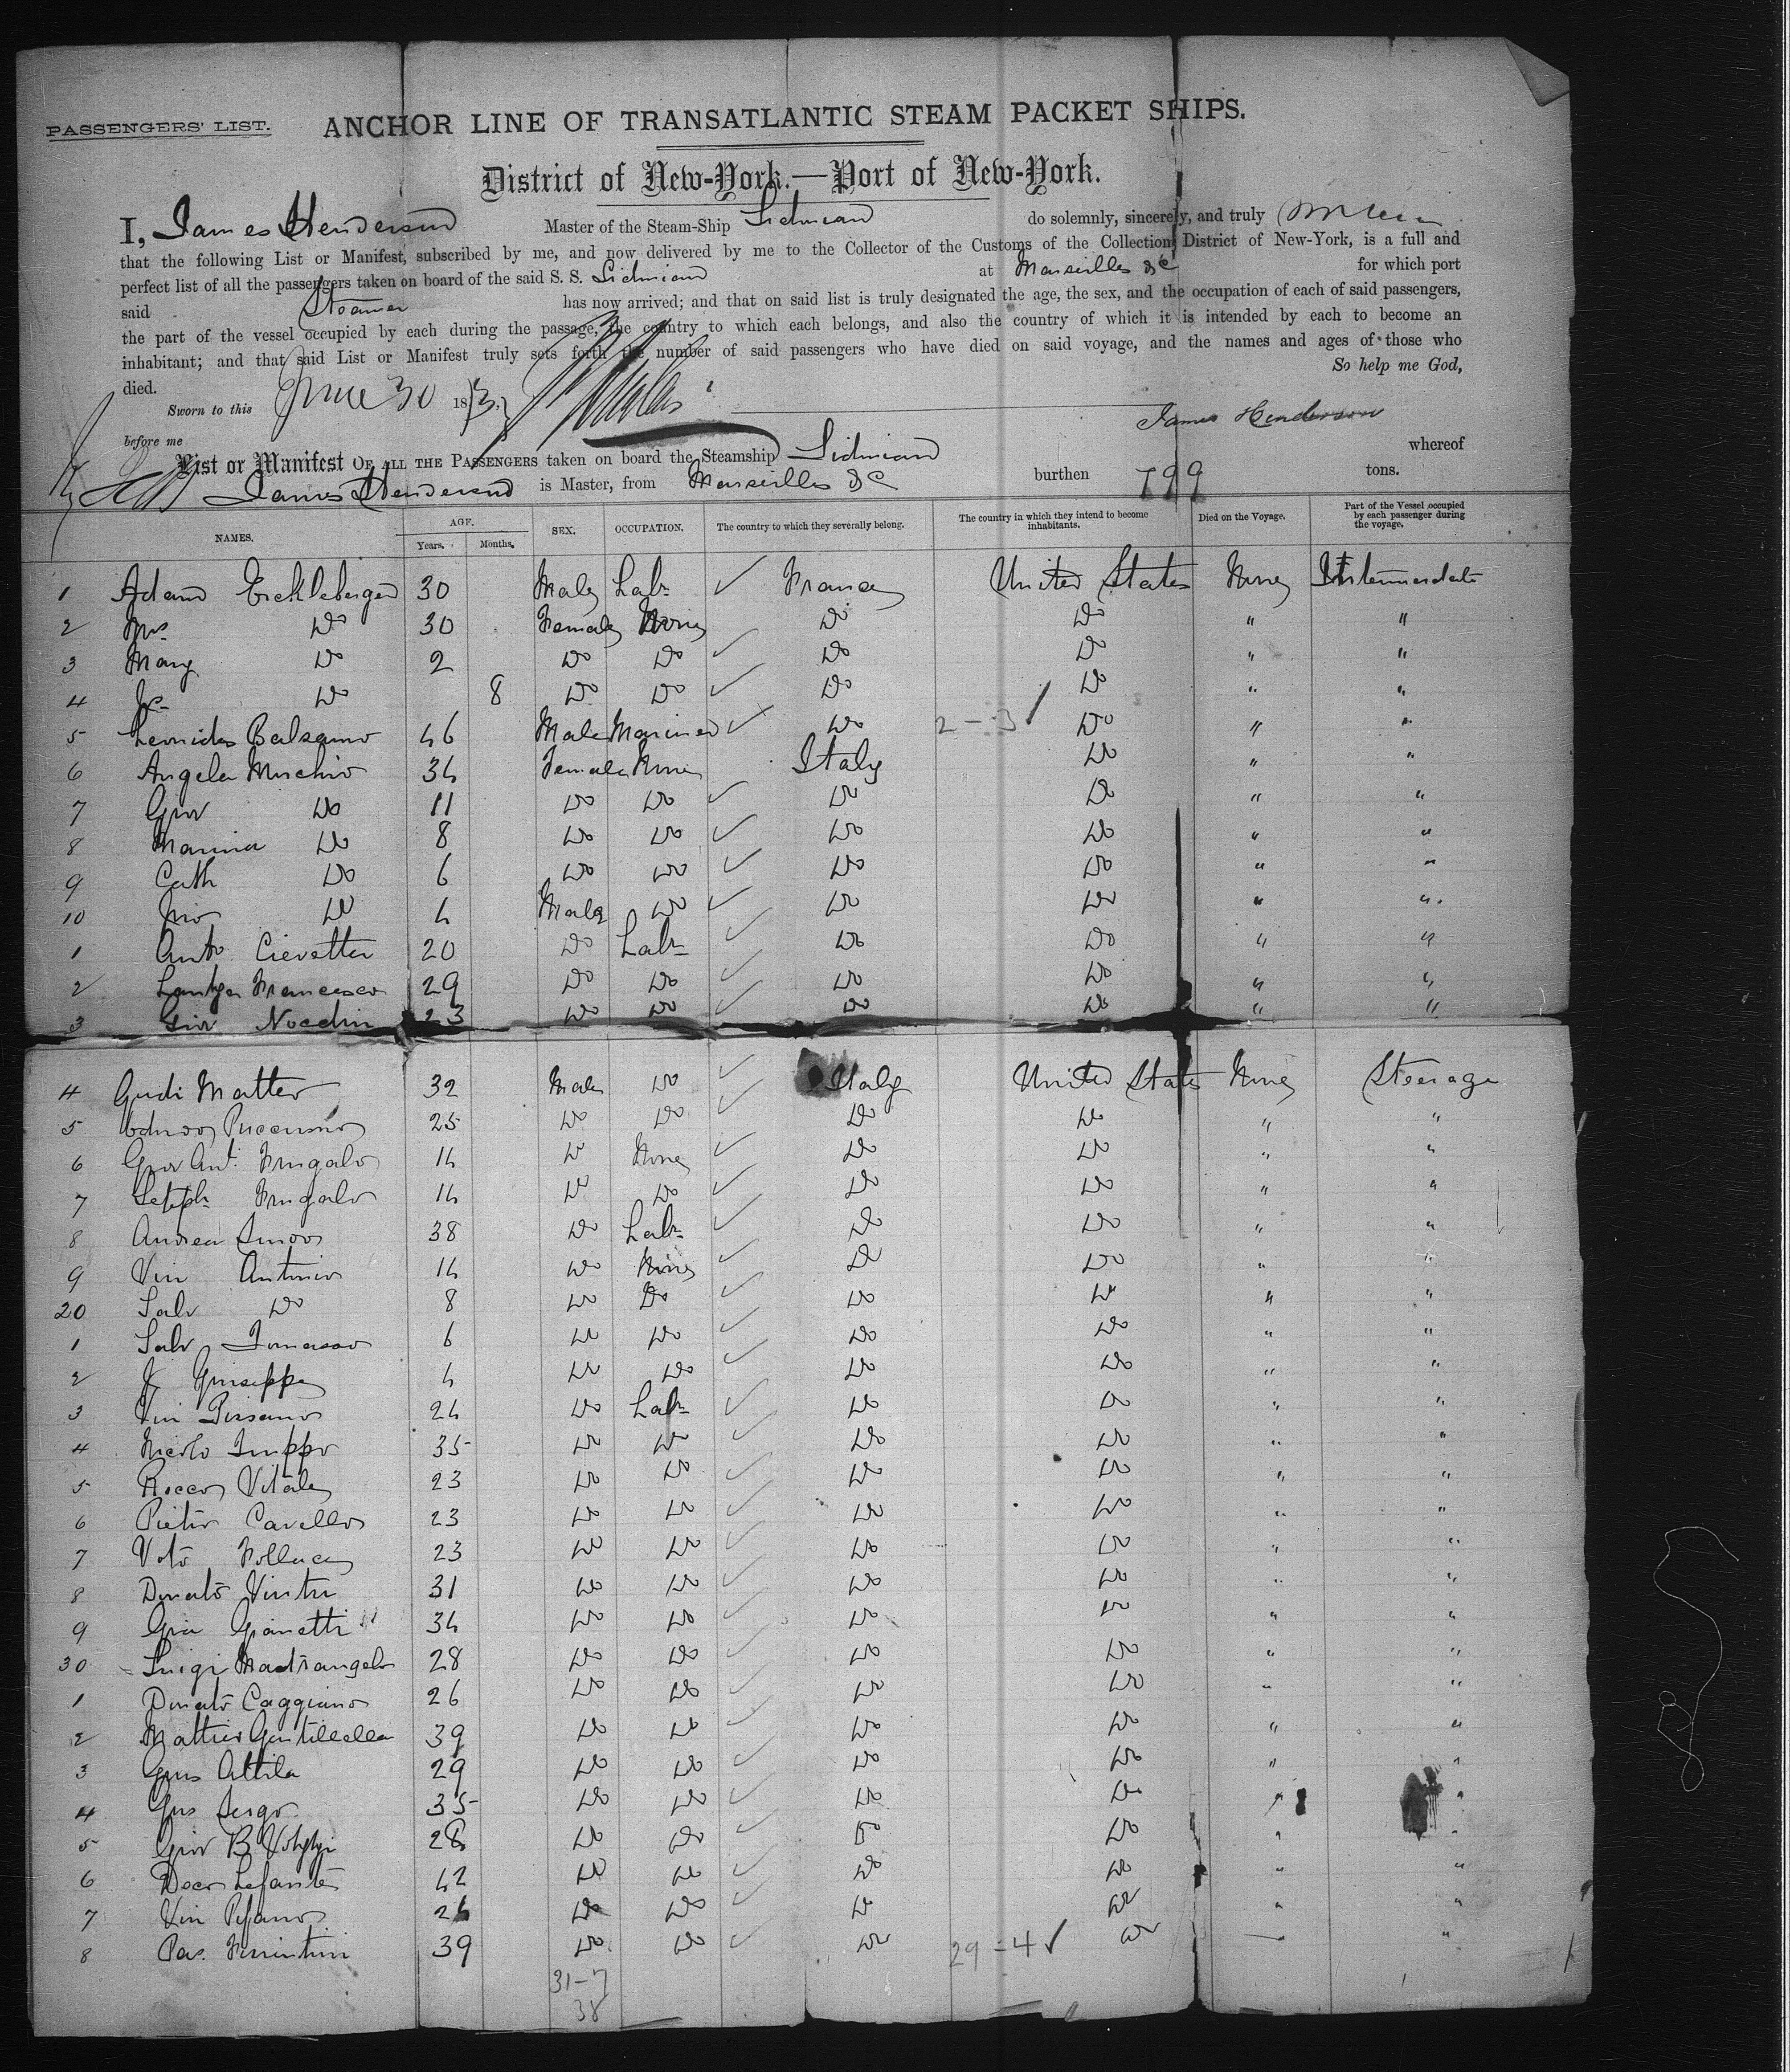 PASSENGERS' LIST. ANCHOR LINE OF TRANSATLANTIC STEAM PACKET SHIPS.
District of New-York.—Port of New-York.
I, James Henderson Master of the Steam-Ship Sidonian do solemnly, sincerely, and truly
that the following List or Manifest, subscribed by me, and now delivered by me to the Collector of the Customs of the Collection District of New-York, is a full and
perfect list of all the passengers taken on board of the said S. S. Sidonian at Marseilles &c for which port
said Steamer has now arrived; and that on said list is truly designated the age, the sex, and the occupation of each of said passengers,
the part of the vessel occupied by each during the passage, the country to which each belongs, and also the country of which it is intended by each to become an
inhabitant; and that said List or Manifest truly sets forth the number of said passengers who have died on said voyage, and the names and ages of those who
died. So help me God,
Sworn to this June 30 1873
James Henderson
before me
List or Manifest OF ALL THE PASSENGERS taken on board the Steamship Sidonian whereof
James Henderson is Master, from Marseilles &c burthen 799 tons.
NAMES. AGE. Years. Months. SEX. OCCUPATION. The country to which they severally belong. The country in which they intend to become inhabitants. Died on the Voyage. Part of the Vessel occupied by each passenger during the voyage.
1 Adam Eckleberger 30 Male Labr ✓ France United States None Intermediate
2 Mrs Do 30 Female None Do Do " "
3 Mary Do 2 Do Do ✓ Do Do " "
4 Do 8 Do Do ✓ Do Do " "
5 Leonidas Balsamo 46 Male Mariner ✓ Do 2-3 ✓ Do " "
6 Angela Muschio 34 Female None Italy Do " "
7 Giov Do 11 Do Do ✓ Do Do " "
8 Mannia Do 8 Do Do ✓ Do Do " "
9 Cath Do 6 Do Do ✓ Do Do " "
10 Do 4 Male Do ✓ Do Do " "
1 Anto Cievetter 20 Do Labr ✓ Do Do " "
2 Francesco 29 Do Do ✓ Do Do " "
3 Giov Nocchin 23 Do Do ✓ Do Do " "
4 Gudi Matteo 32 Male Do ✓ Italy United States None Steerage
5 25 Do Do ✓ Do Do " "
6 Giov Ant. Frugalo 14 Do None ✓ Do Do " "
7 Frugalo 14 Do Do ✓ Do Do " "
8 Andrea 38 Do Labr ✓ Do Do " "
9 Vin Antonio 14 Do None ✓ Do Do " "
20 Salv Do 8 Do Do ✓ Do Do " "
1 Salv Tomasso 6 Do Do ✓ Do Do " "
2 Giuseppe 4 Do Do ✓ Do Do " "
3 Vin Pissano 24 Do Labr ✓ Do Do " "
4 35 Do Do ✓ Do Do " "
5 Rocco Vitale 23 Do Do ✓ Do Do " "
6 Pietro Cavello 23 Do Do ✓ Do Do " "
7 Vito 23 Do Do ✓ Do Do " "
8 Donato Vintri 31 Do Do ✓ Do Do " "
9 Gia Gianetti 34 Do Do ✓ Do Do " "
30 Luigi Madrangelo 28 Do Do ✓ Do Do " "
1 Donato Caggiano 26 Do Do ✓ Do Do " "
2 Mattieo Gentilella 39 Do Do ✓ Do Do " "
3 Gius Attila 29 Do Do ✓ Do Do " "
4 Gius Sergo 35 Do Do ✓ Do Do " "
5 Giov B 28 Do Do ✓ Do Do " "
6 Lefante 42 Do Do ✓ Do Do " "
7 Vin Pisano 24 Do Do ✓ Do Do " "
8 Pas. 39 Do Do ✓ Do 29=4 ✓ Do "
31-7
38